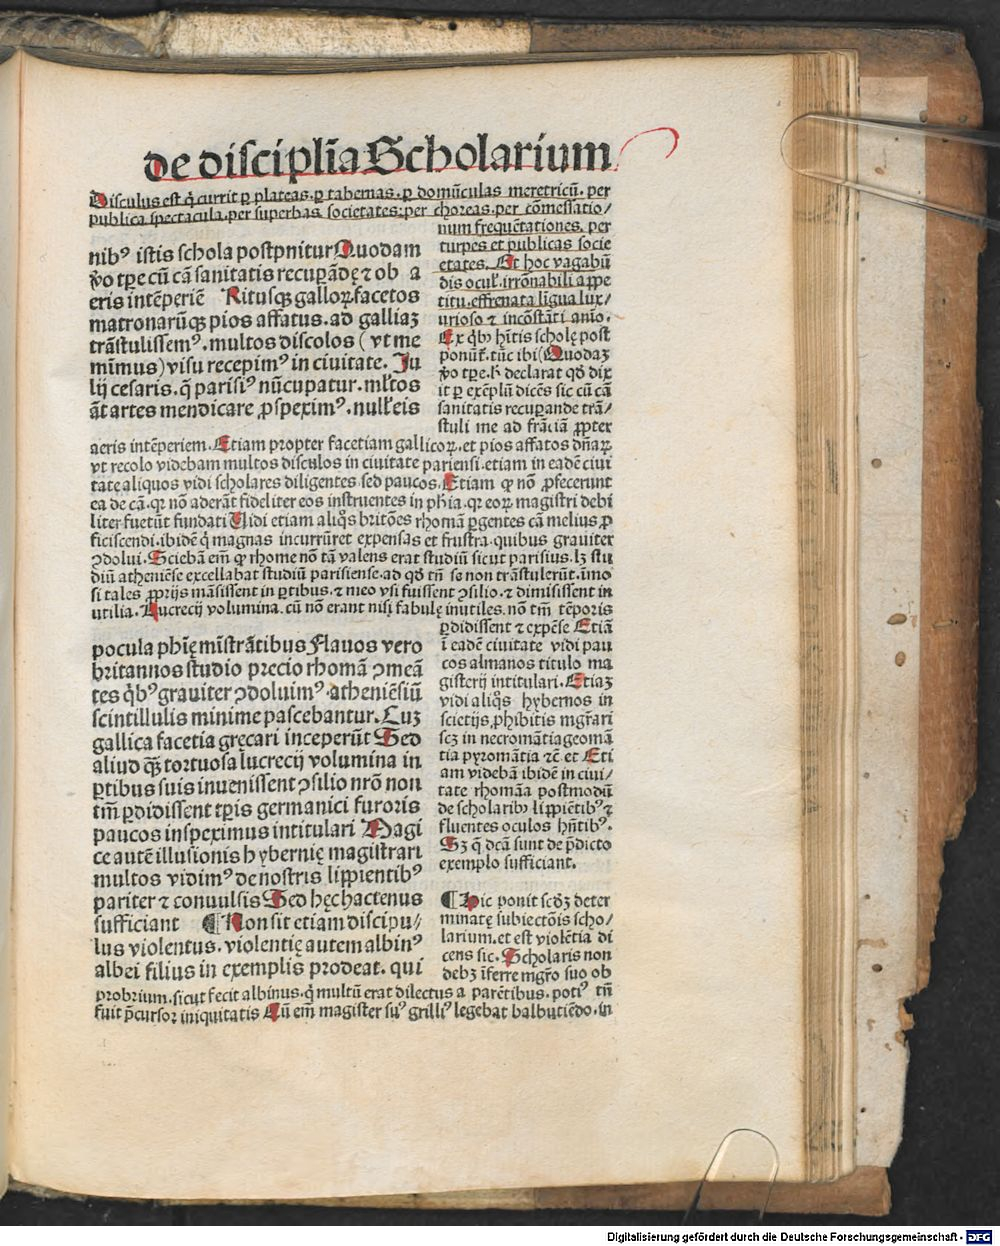 de discipli̅a Scholarium
Disculus est q̄ currit ꝑ plateas. ꝑ tabernas. ꝑ domū̅culas meretricū. per
publica spectacula. per superbas societates: per choreas. per cōmessatio/
num frequētationes. per
turpes et publicas socie
etates. Et hoc vagabū
dis ocul'. irrōnabili appe
titu. effrenata ligua lux/
urioso ⁊ incōstāti anīo.
Ex q̄bꝰ hn̄tis scholę post
ponūt̄. tūc ibi (Quodaꝫ
v̊o tꝑe. h̄ declarat qō dix
it ꝑ exēplū dicēs sic cū cā
sanitatis recuꝑande trā/
stuli me ad frā̄ciā ꝓpter
nibꝰ istis schola postpnitur Quodam
v̊o tꝑe cū cā sanitatis recuꝑādę ⁊ ob a
eris intēꝑeriē Ritusqꝫ galloꝝ facetos
matronarūqꝫ pios affatus. ad galliaꝫ
trāstulissemꝰ. multos discolos (vt me
mīmus) visu recepimꝰ in ciuitate. Ju
lij cesaris. q̄ parisiꝰ nūcupatur. ml'tos
āt artes mendicare ꝓspeximꝰ. null'eis
aeris intēperiem. Etiam propter facetiam gallicoꝝ. et pios affatos dn̄aꝝ
vt recolo videbam multos disculos in ciuitate pariensi. etiam in eadē ciui
tate aliquos vidi scholares diligentes. sed paucos. Etiam qꝛ nō ꝓfecerunt
ea de cā. qꝛ nō aderāt fideliter eos instruentes in ph̄ia. qꝛ eoꝝ magistri debi
liter fuerūt fundati Uidi etiam aliq̊s britōes rhomā ꝑgentes cā melius ꝓ
ficiscendi. ibidē q̄ magnas incurrūret expensas et frustra. quibus grauiter
ꝯdolui. Sciebā em̄ qꝛ rhome nō tā valens erat studiū sicut parisius. lꝫ stu
diū atheniēse excellabat studiū parisiense. ad qō tn̄ se non trāstulerūt. īmo
si tales ꝓprijs māsissent in ꝑtibus. ⁊ meo vsi fuissent ꝯsilio. ⁊ dimisissent in
utilia. Lucrecij volumina. cū nō erant nisi fabulę inutiles. nō tm̄ tēporis
ꝑdidissent ⁊ expēse Etiā
ī eadē ciuitate vidi pau
cos almanos titulo ma
gisterij intitulari. Etiaꝫ
vidi aliq̊s hybernos in
scietijs ꝓhibitis mgr̄ari
scꝫ in necromātia geomā
tia pyromātia ⁊c̄ et Eti
am videbā ibidē in ciui/
tate rhomāa postmodū
de scholaribꝰ lippiētibꝰ ⁊
fluentes oculos hn̄tibꝰ.
Sꝫ q̄ dcā sunt de p̄dicto
exemplo sufficiant.
pocula phię mīstrātibus Flauos vero
britannos studio precio rhomā ꝯmeā
tes q̄bꝰ grauiter ꝯdoluimꝰ. atheniēsiū
scintillulis minime pascebantur. Cuꝫ
gallica facetia gręcari inceperūt Sed
aliud qꝫ̄ tortuosa lucrecij volumina in
ꝑtibus suis inuenissent ꝯsilio nr̄o non
tm̄ ꝑdidissent tꝑis germanici furoris
paucos inspeximus intitulari Magi
ce autē illusionis hybernię magistrari
multos vidimꝰ de nostris lippientibꝰ
pariter ⁊ conuulsis Sed hęc hactenus
sufficiant ¶ Non sit etiam discipu/
lus violentus. violentię autem albinꝰ
albei filius in exemplis prodeat. qui
¶ Hic ponit scd̄ꝫ deter
minatę subiectōis scho/
larium. et est violētia di
cens sic. Scholaris non
debꝫ īferre mgr̄o suo ob
probrium. sicut fecit albinus. q̄ multū erat dilectus a parētibus. potiꝰ tn̄
fuit p̄cursor iniquitatis Cū em̄ magister suꝰ grilliꝰ legebat balbutiēdo. in
Digitalisierung gefördert durch die Deutsche Forschungsgemeinschaft - DFG